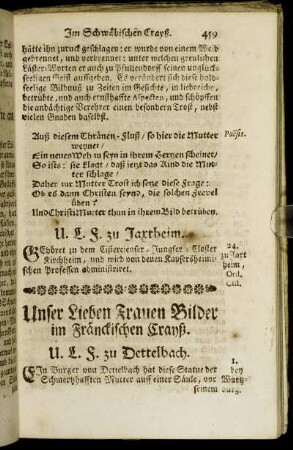 Im Schwäbischen Crayß. 459
hätte ihn zuruck geschlagen: er wurde von einem Weib
gebrennet, und verbrennet: unter welchen greulichen
Läster-Worten er auch zu Pfullendorff seinen unglück-
seeligen Geist auffgeben. Es verändert sich diese hold-
seelige Bildnuß zu Zeiten im Gesichte, in liebreiche,
betrübte, und auch ernsthaffte Aspecten, und schöpffen
die andächtige Verehrer einen besondern Trost, nebst
vielen Gnaden daselbst.
Auß diesem Thränen-Fluß / so hier die Mutter Poësis.
weynet /
Ein neues Weh in seyn in ihrem Hertzen scheinet /
So ists: sie klagt / daß jetzt das Kind die Mut-
ter schlage /
Daher zur Mutter Trost ich setze diese Frage:
Ob es dann Christen seynd, die solchen Frevel
üben?
Und Christi Mutter thun in ihrem Bild betrüben.
U. L. F. zu Jaxtheim.
GEhöret zu dem Cistercienser-Jungfer-Closter 24.
Kirchheim, und wird von denen Kaysersheimi- zu Jaxt
schen Professen administriret. heim,
Ord.
Cist.
Unser Lieben Frauen Bilder
im Fränckischen Crayß.
U. L. F. zu Dettelbach.
EIn Burger von Dettelbach hat diese Statue der 1.
Schmertzhafften Mutter auff einer Säule, vor bey
seinem Würtz-
burg.